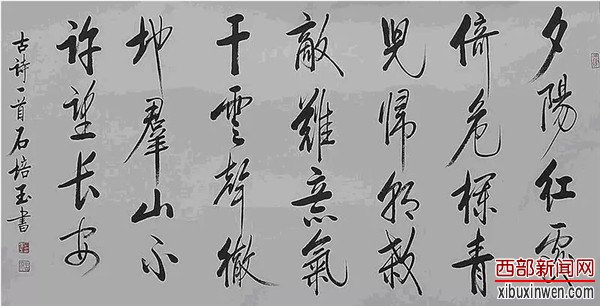 夕陽紅處
倚危欄青
兕歸朝殺
敵難意氣
干雲聲徹
地羣山不
許望長安
古詩一首石培玉書
西部新闻网
xibuxinwen.com